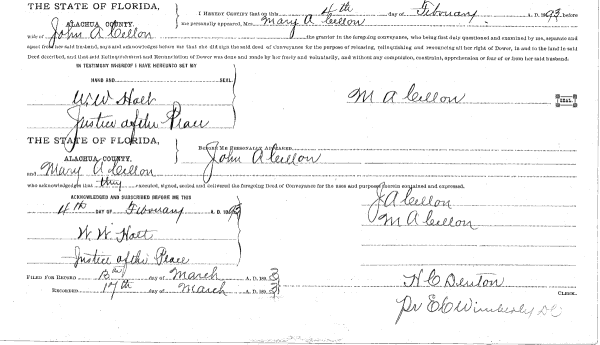 THE STATE OF FLORIDA,
ALACHUA COUNTY.
I HEREBY CERTIFY that on this 4th day of February A. D. 1893 before
me personally appeared, Mrs. Mary A Cellon
wife of John A Cellon the grantor in the foregoing conveyance, who being first duly questioned and examined by me, separate and
apart from her said husband, says and acknowledges before me that she did sign the said deed of Conveyance for the purpose of releasing, relinquishing and renouncing all her right of Dower, in and to the land in said
Deed described, and that said Relinquishment and Renunciation of Dower was done and made by her freely and voluntarily, and without any compulsion, constraint, apprehension or fear of or from her said husband.
IN TESTIMONY WHEREOF I HAVE HEREUNTO SET MY
HAND AND SEAL.
W. W. Holt
M A Cellon
SEAL.
Justice of the Peace
THE STATE OF FLORIDA,
ALACHUA COUNTY.
BEFORE ME PERSONALLY APPEARED John A Cellon
and Mary A Cellon
who acknowledges that they executed, signed, sealed and delivered the foregoing Deed of Conveyance for the uses and purposes therein contained and expressed.
ACKNOWLEDGED AND SUBSCRIBED BEFORE ME THIS
4th DAY OF February A. D. 1893
J A Cellon
M A Cellon
W. W. Holt
Justice of the Peace
FILED FOR RECORD day of March A. D. 189
H C Denton
CLERK.
RECORDED 17th day of March A. D. 189
Pr E C Wimberly DC